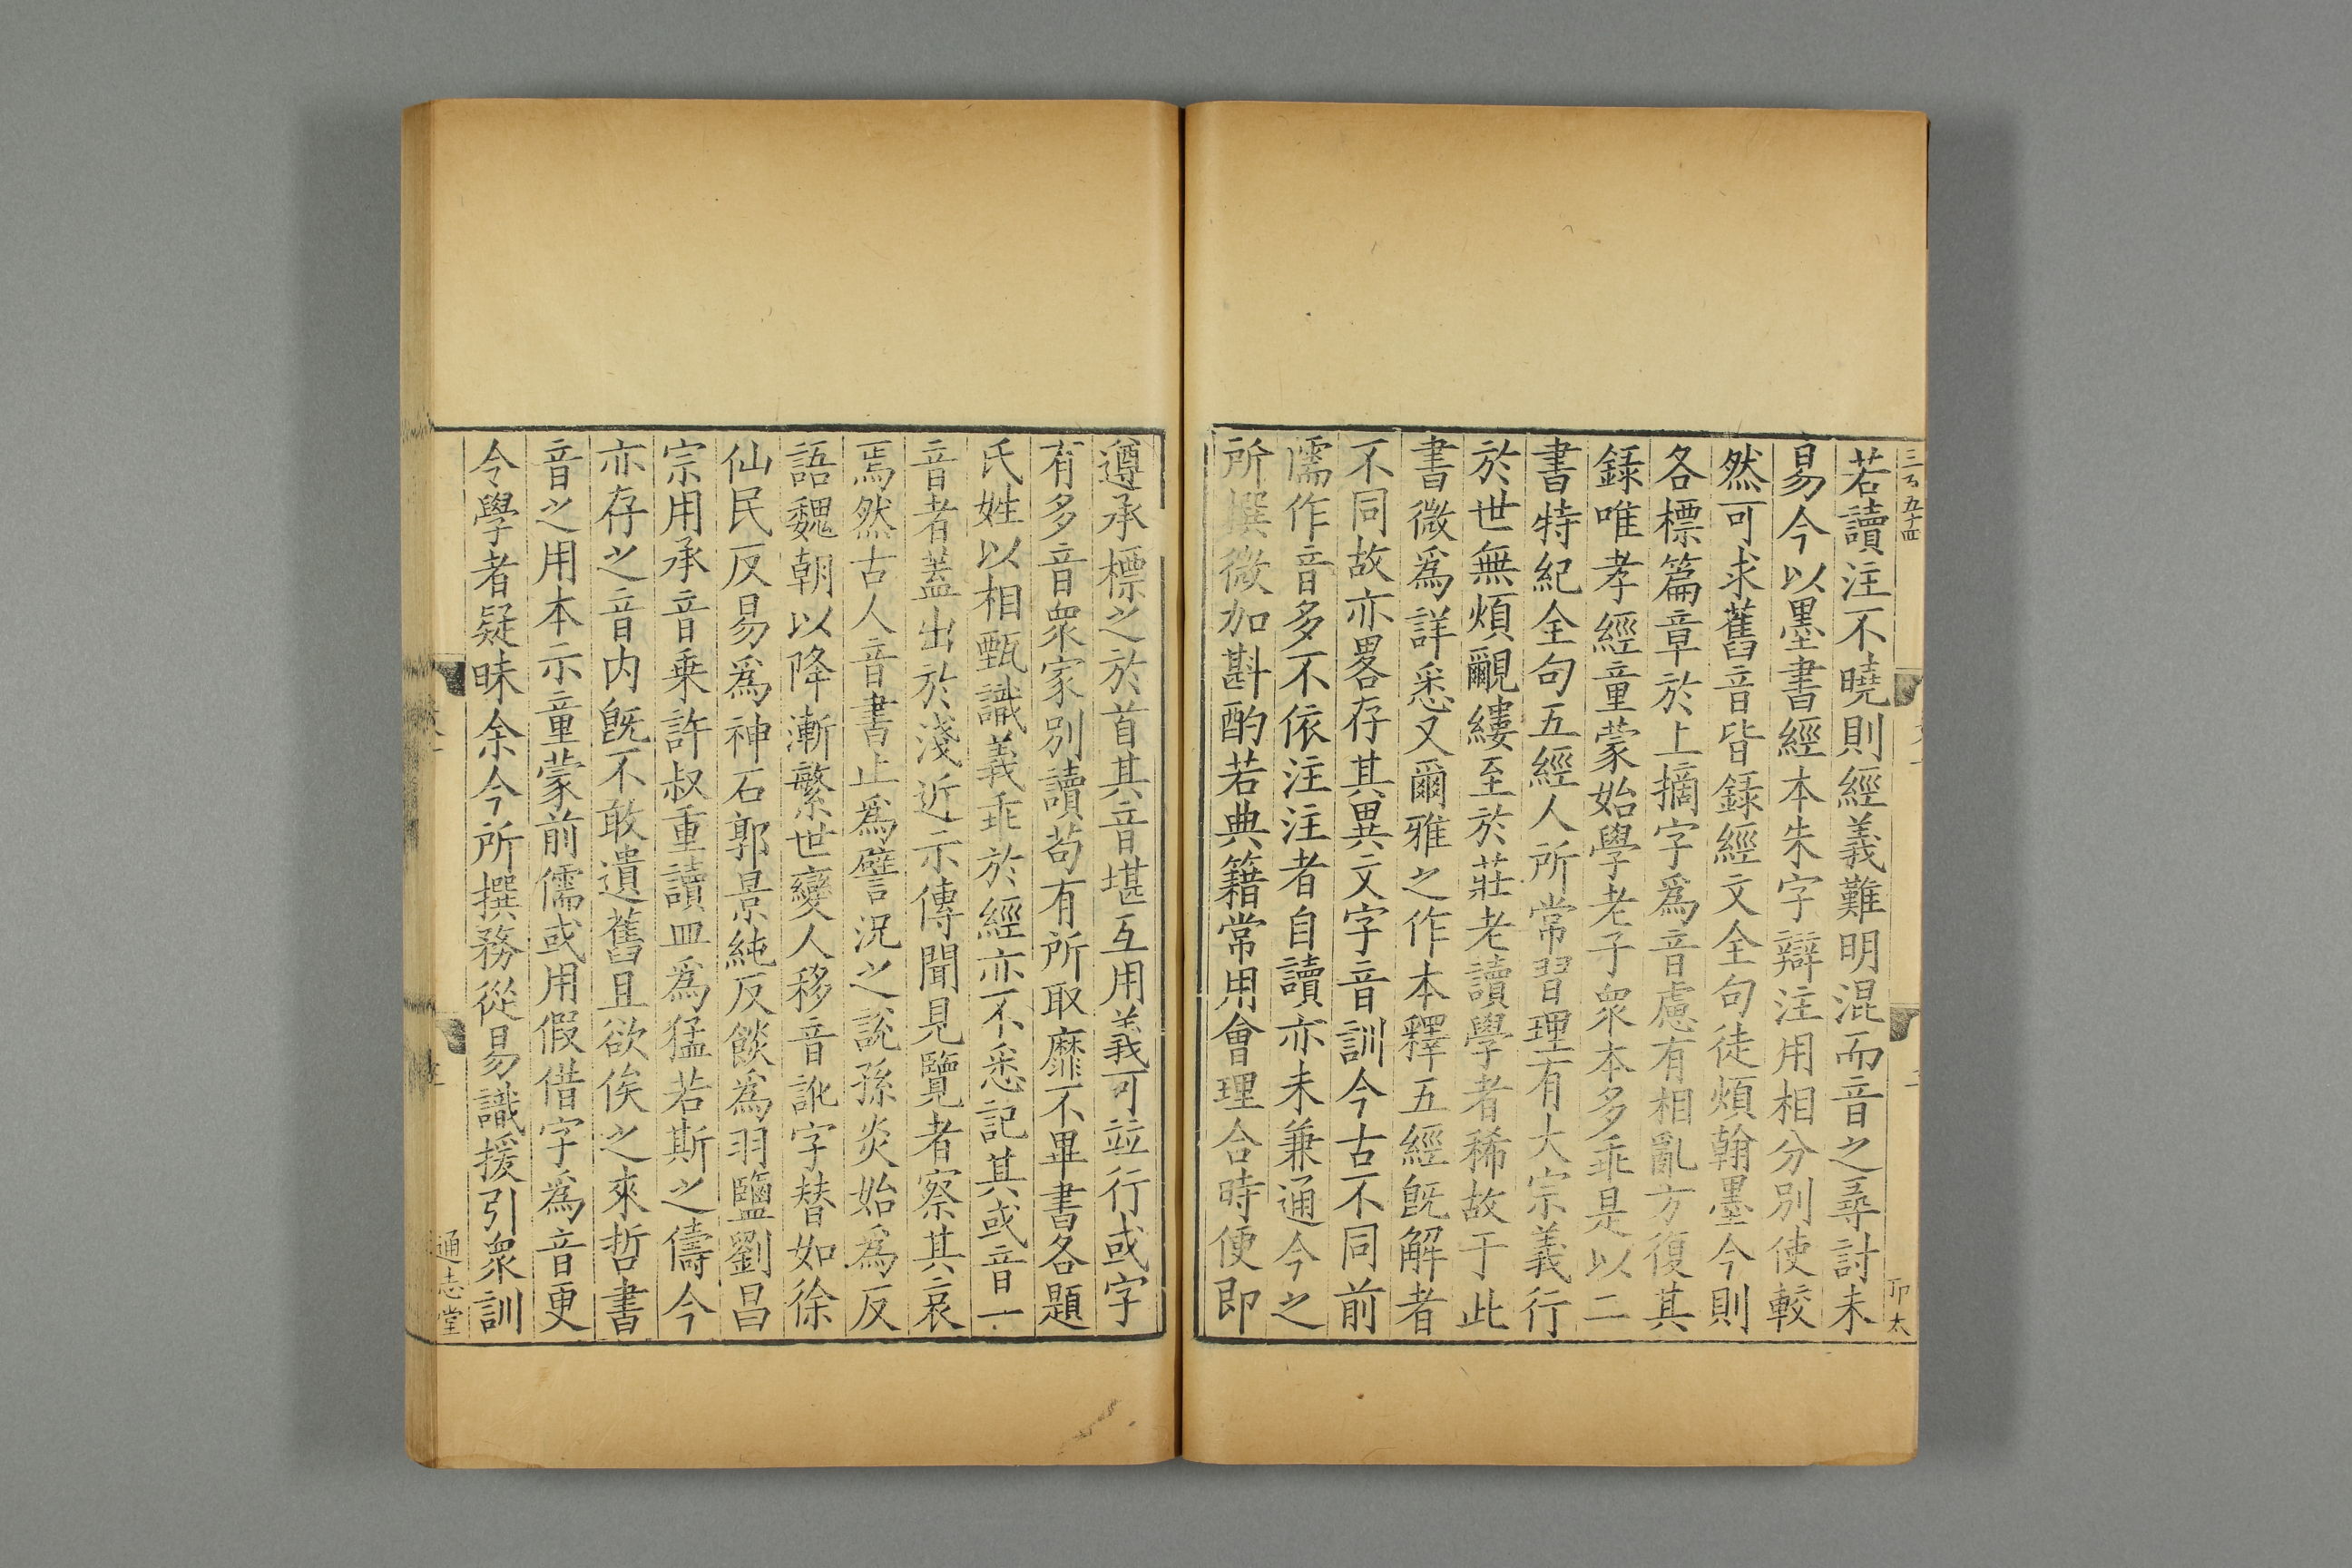 三百五十四
卬太
若讀注不曉則經義難明混而音之尋討未
易今以墨書經本朱字辯注用相分別使較
然可求舊音皆録經文全句徒煩翰墨今則
各標篇章於上摘字爲音慮有相亂方復其
録唯孝經童蒙始學老子衆本多乖是以二
書特紀全句五經人所常習理有大宗義行
於世無煩覼縷至於莊老讀學者稀故于此
書微爲詳悉又爾雅之作本釋五經既解者
不同故亦畧存其異文字音訓今古不同前
儒作音多不依注注者自讀亦未兼通今之
所撰微加斟酌若典籍常用會理合時便即
遵承標之於首其音堪互用義可並行或字
有多音衆家別讀苟有所取靡不畢書各題
氏姓以相甄識義乖於經亦不悉記其或音一
音者蓋出於淺近示傳聞見覽者察其衷
焉然古人音書止爲譬況之說孫炎始爲反
語魏朝以降漸繁世變人移音訛字替如徐
仙民反易爲神石郭景純反餤爲羽鹽劉昌
宗用承音乗許叔重讀皿爲猛若斯之儔今
亦存之音内既不敢遺舊且欲俟之來哲書
音之用本示童蒙前儒或用假借字爲音更
令學者疑昧余今所撰務從易識援引衆訓
通志堂